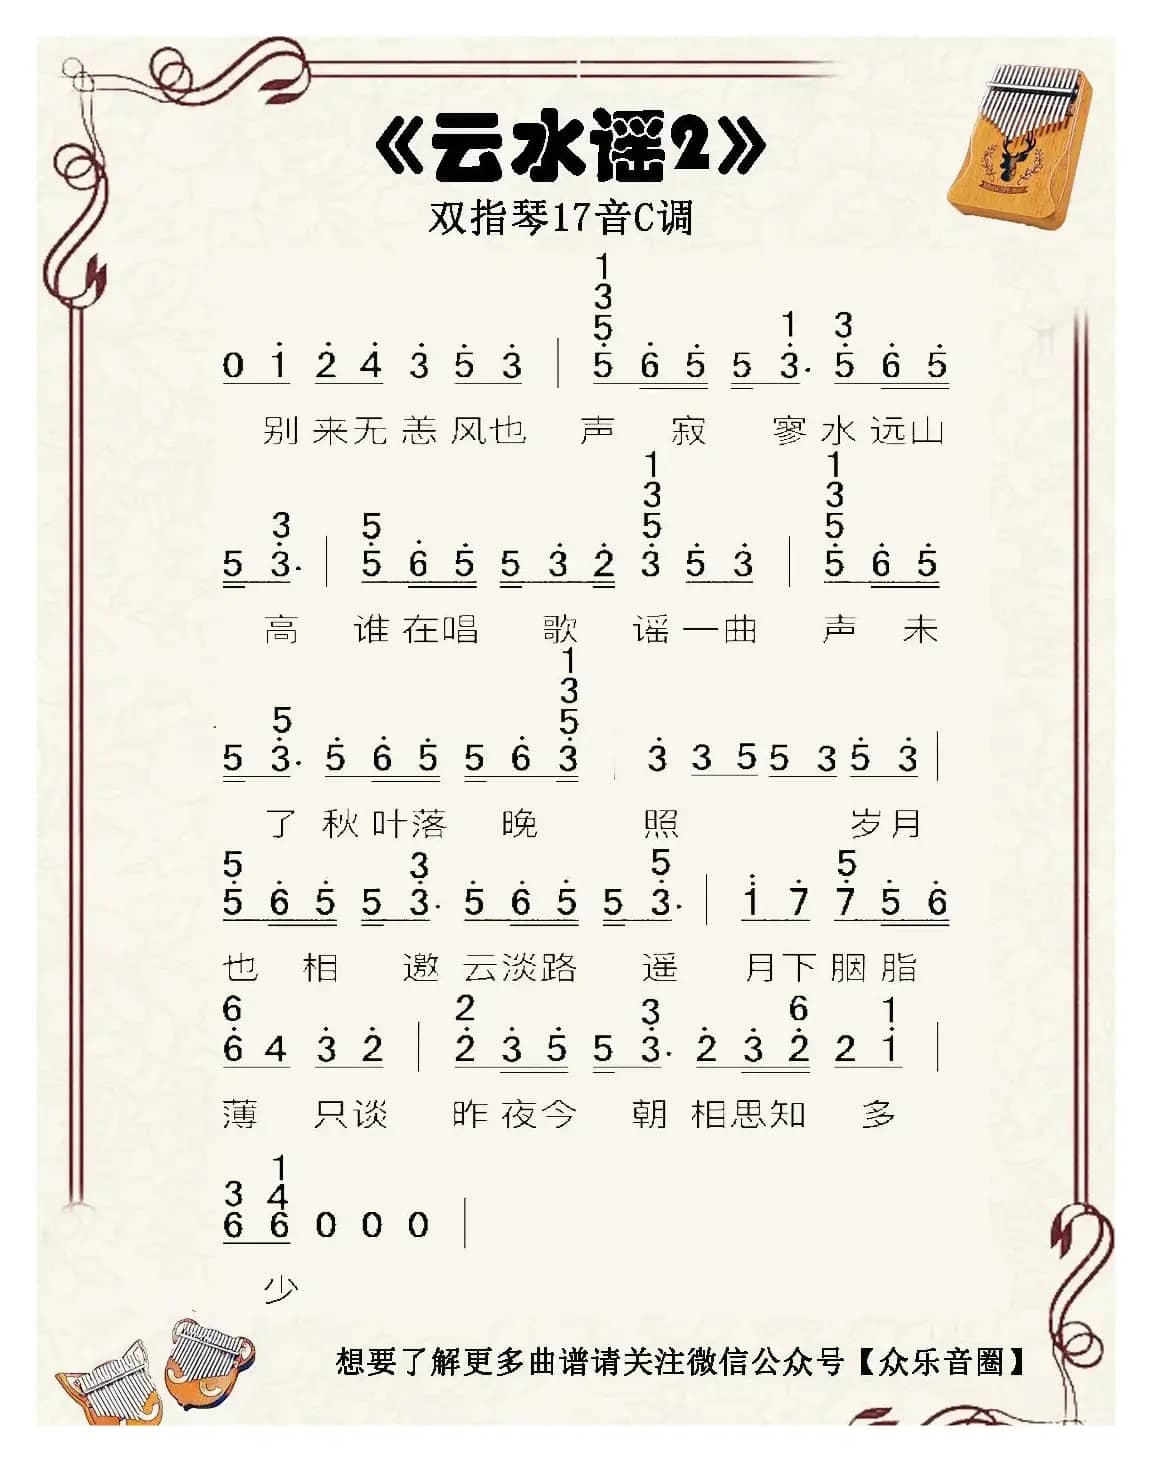 《云水谣2》
双指琴17音C调
1
3
5 1 3
0 1̇ 2̇ 4̇ 3̇ 5̇ 3̇ | 5̇ 6̇ 5̇ 5 3̇. 5̇ 6̇ 5̇
别来无恙风也 声 寂 寥水远山
1 1
3 3
3 5 5 5
5 3̇. | 5̇ 6̇ 5̇ 5 3̇ 2̇ 3̇ 5̇ 3̇ | 5̇ 6̇ 5̇
高 谁在唱 歌 谣一曲 声 未
1
3
5 5
5 3̇. 5̇ 6̇ 5̇ 5 6̇ 3̇ 3̇ 3 5 5 3 5̇ 3̇ |
了秋叶落 晚 照 岁月
5 3 5 5
5̇ 6̇ 5̇ 5 3̇. 5̇ 6̇ 5̇ 5 3̇. | 1̇ 7 7̇ 5̇ 6̇
也 相 邀云淡路 遥 月下胭脂
6 2 3 6 1
6̇ 4 3̇ 2̇ | 2̇ 3̇ 5̇ 5 3̇. 2̇ 3̇ 2̇ 2 1̇ |
薄 只谈 昨夜今 朝相思知 多
1
3 4
6 6 0 0 0 |
少
想要了解更多曲谱请关注微信公众号【众乐音圈】